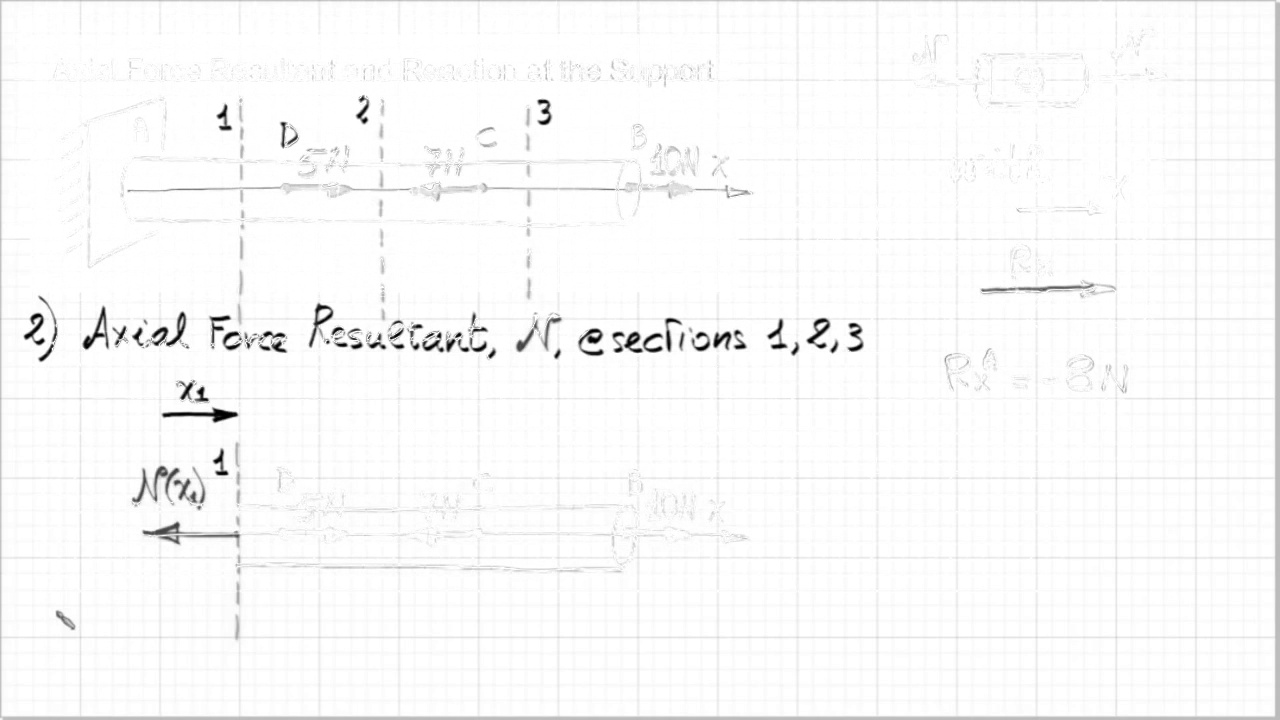 Axial Force Resultant and Reaction at the Support
1 2 3
A D 5N 7N C B 10N x
N N
x
Rx
2) Axial Force Resultant, N, @sections 1,2,3
RxA = -8N
x1
N(x1) 1 D 5N 7N C B 10N x